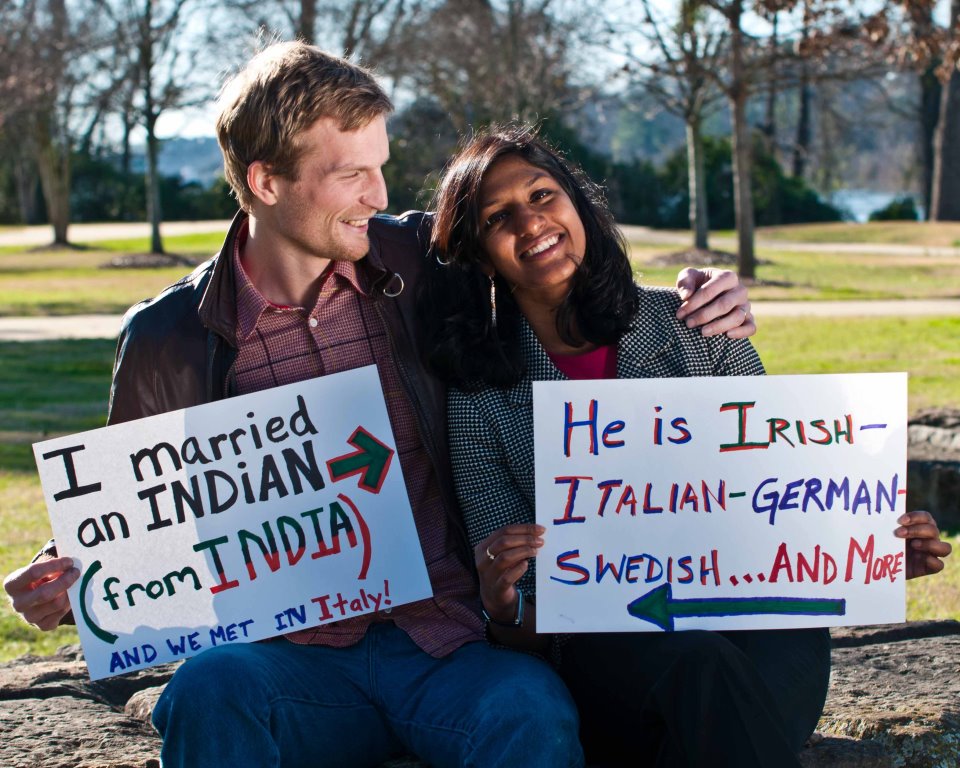 I married
an INDiAN
(from INDIA)
AND WE MET IN Italy!
He is IRISH-
ITALIAN-GERMAN-
SWEDISH...AND MORE